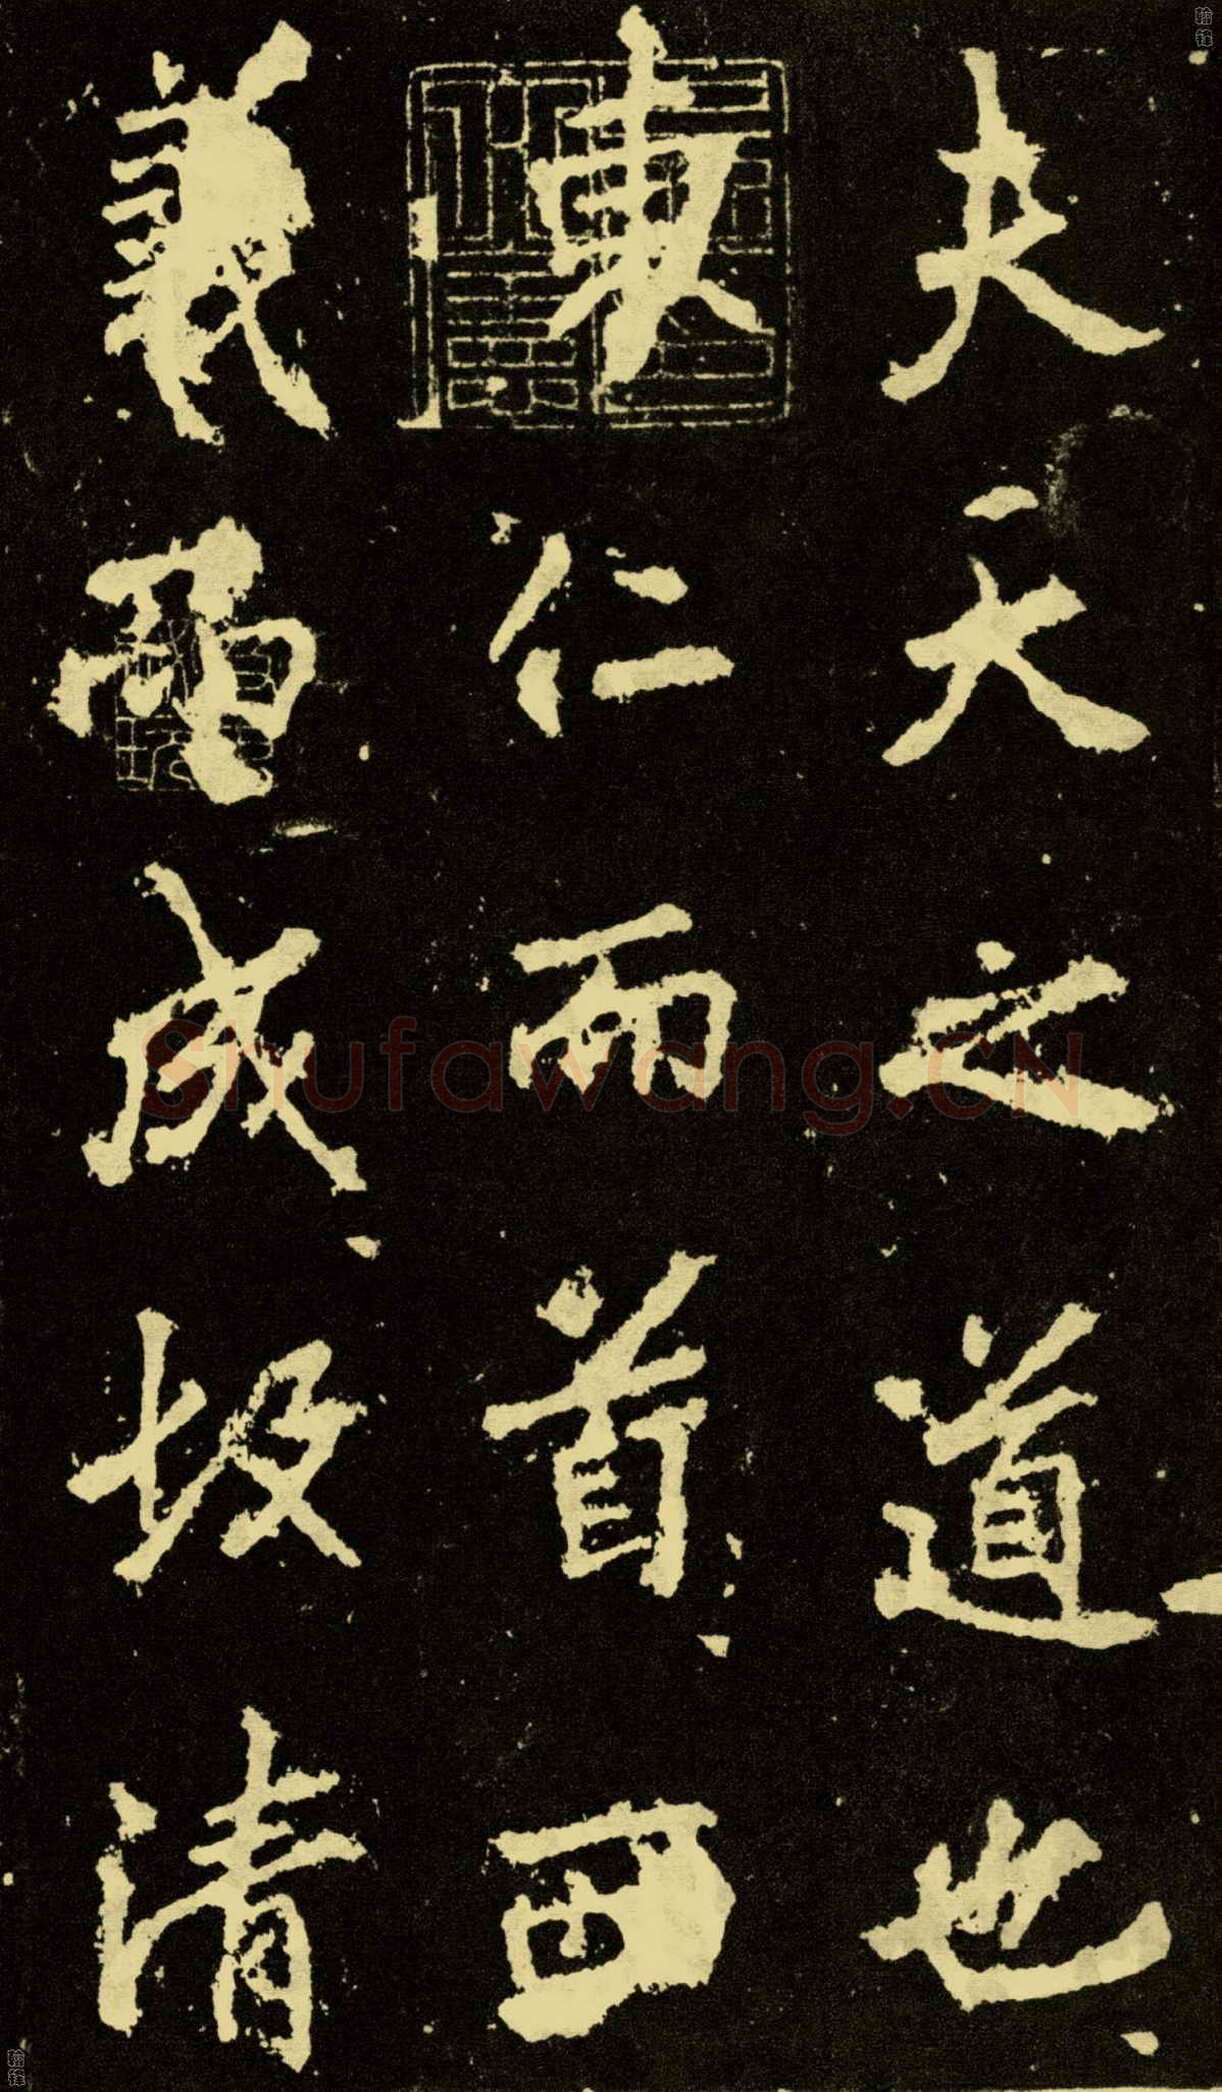 夫天之道也
東仁而首西
義而成故清
Shufawang.CN